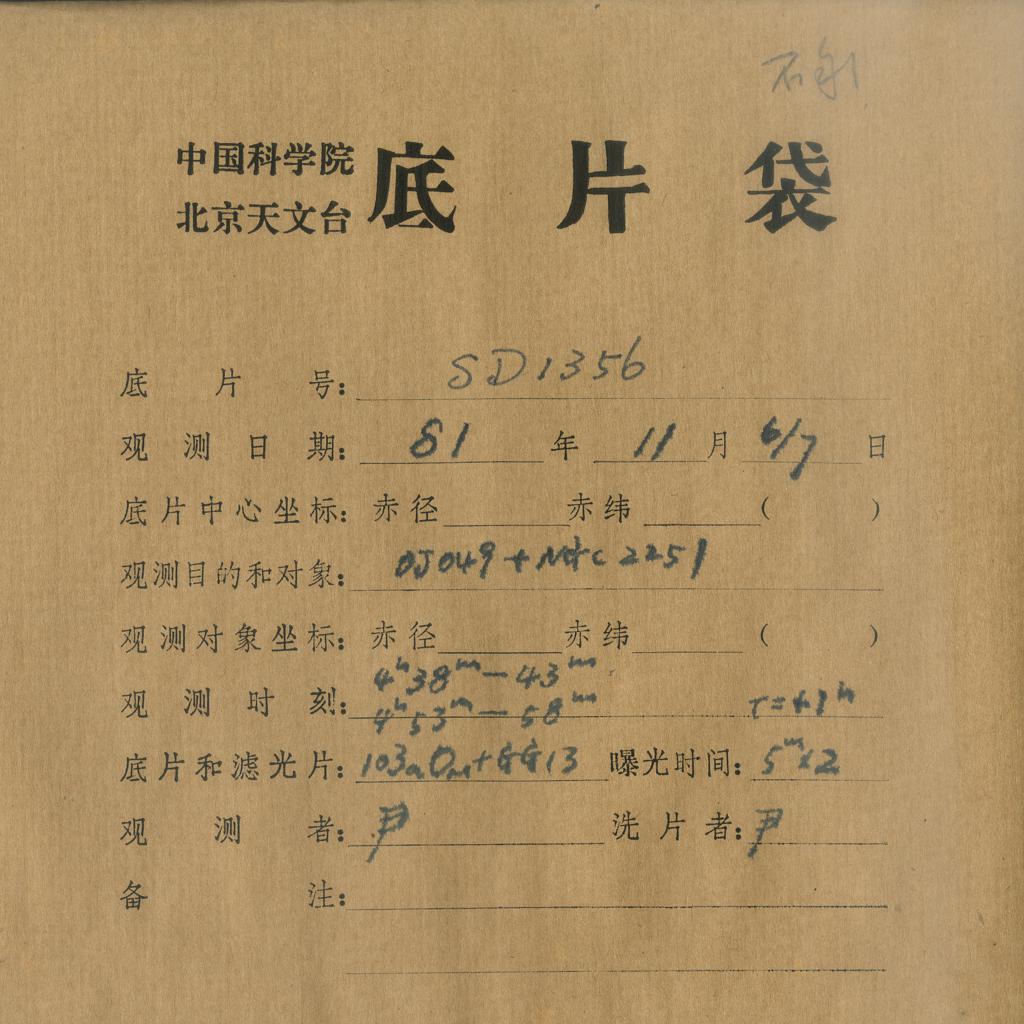 中国科学院
北京天文台 底片袋
底片号: SD1356
观测日期: 81 年 11 月 6/7 日
底片中心坐标: 赤径 赤纬 ( )
观测目的和对象: OJ049 + NGC 2251
观测对象坐标: 赤径 赤纬 ( )
4ʰ38ᵐ — 43ᵐ
观测时刻: 4ʰ53ᵐ — 58ᵐ t=+1ʰ
底片和滤光片: 103aO+GG13 曝光时间: 5ᵐ×2
观测者: 尹 洗片者: 尹
备注: